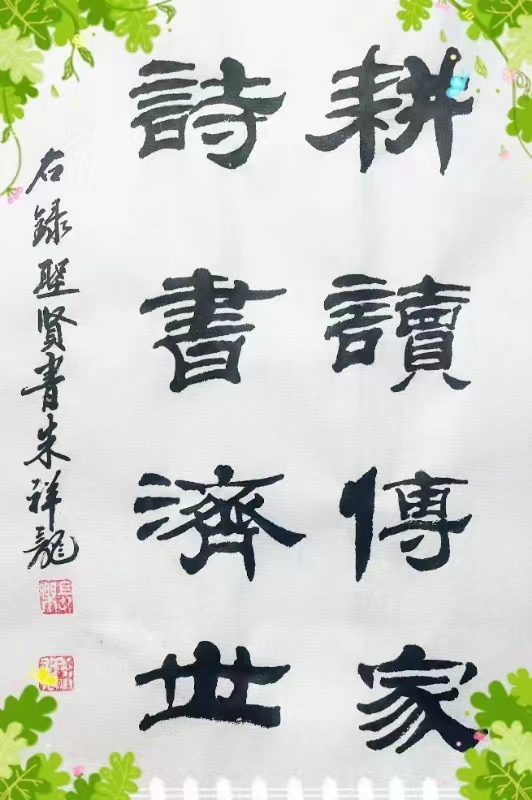 耕讀傳家
詩書濟世
右録聖賢書朱祥龍